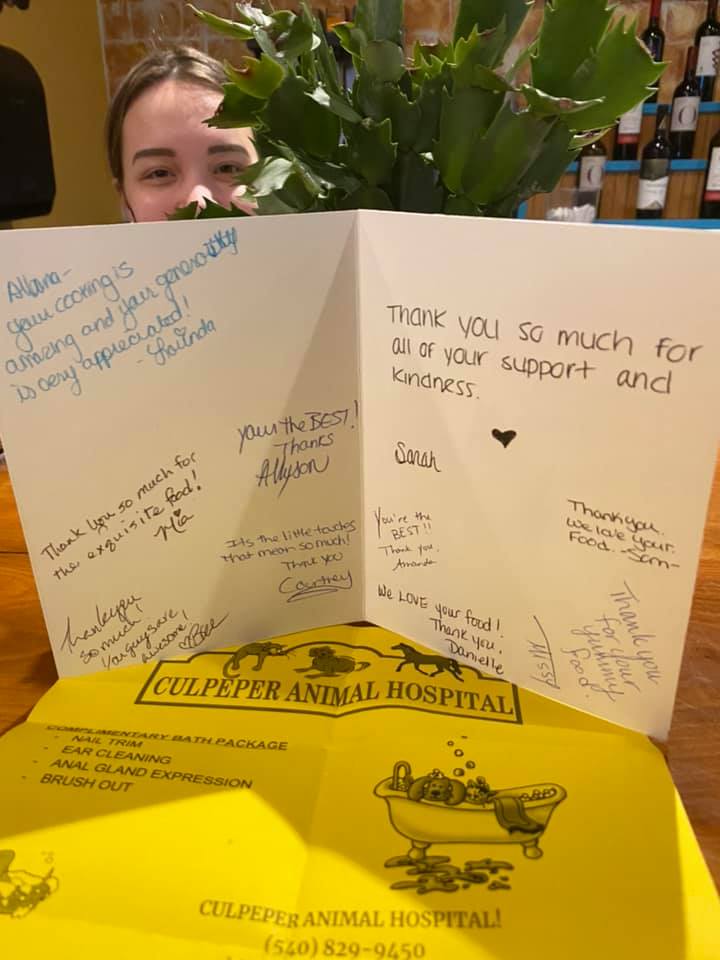 your cooking is
amazing and your generosity
is very appreciated!
You're the BEST!
Thanks
Allyson
Thank you so much for
the exquisite food!
Mia
Its the little touches
that mean so much!
Thank you
Courtney
Thank you
so much!
You guys are
awesome!
Thank you so much for
all of your support and
kindness.
Sarah
You're the
BEST!!
Thank you,
Amanda
Thank you.
We love your
Food. -Sam-
We LOVE your food!
Thank you,
Danielle
Missy
Thank you
for your
yummy
food!
CULPEPER ANIMAL HOSPITAL
COMPLIMENTARY BATH PACKAGE
- NAIL TRIM
- EAR CLEANING
- ANAL GLAND EXPRESSION
- BRUSH OUT
CULPEPER ANIMAL HOSPITAL!
(540) 829-9450